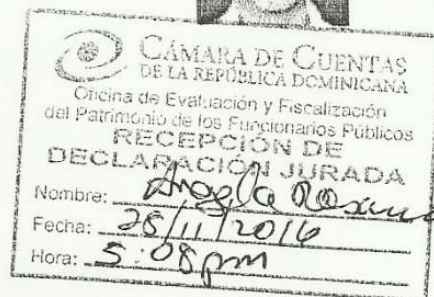 CÁMARA DE CUENTAS
DE LA REPÚBLICA DOMINICANA
Oficina de Evaluación y Fiscalización
del Patrimonio de los Funcionarios Públicos
RECEPCIÓN DE
DECLARACIÓN JURADA
Nombre: Angela
Fecha: 25/11/2016
Hora: 5:08pm